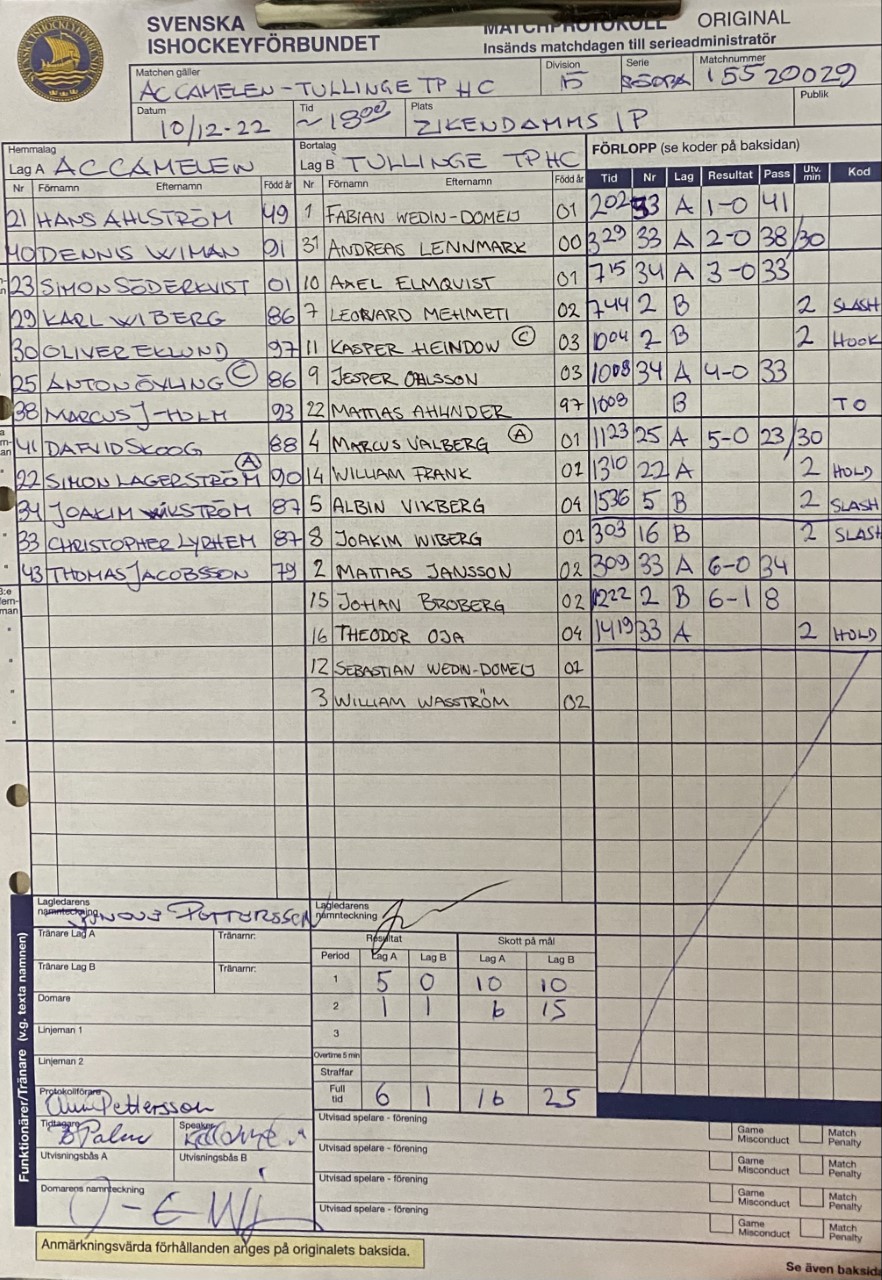 SVENSKA
ISHOCKEYFÖRBUNDET
MATCHPROTOKOLL ORIGINAL
Insänds matchdagen till serieadministratör
Matchen gäller Division Serie Matchnummer
AC CAMELEN - TULLINGE TP HC 15 15520029
Datum Tid Plats Publik
10/12-22 ~1800 ZIKENDAMMS IP
Hemmalag Bortalag FÖRLOPP (se koder på baksidan)
Lag A AC CAMELEN Lag B TULLINGE TPHC
Nr Förnamn Efternamn Född år Nr Förnamn Efternamn Född år Tid Nr Lag Resultat Pass Utv. min Kod
21 HANS AHLSTRÖM 49 1 FABIAN WEDIN-DOMEIJ 01 202 33 A 1-0 41
40 DENNIS WIMAN 91 31 ANDREAS LENNMARK 00 329 33 A 2-0 38/30
23 SIMON SÖDERKVIST 01 10 AXEL ELMQVIST 01 715 34 A 3-0 33
29 KARL WIBERG 86 7 LEONARD MEHMETI 02 744 2 B 2 SLASH
30 OLIVER EKLUND 97 11 KASPER HEINDOW C 03 1004 2 B 2 HOOK
25 ANTON ÖVLING C 86 9 JESPER OHLSSON 03 1008 34 A 4-0 33
38 MARCUS J-HOLM 93 22 MATTIAS AHLINDER 97 1008 B TO
41 DAFVID SKOOG 88 4 MARCUS VALBERG A 01 1123 25 A 5-0 23/30
22 SIMON LAGERSTRÖM A 90 14 WILLIAM FRANK 01 1310 22 A 2 HOLD
34 JOAKIM WIKSTRÖM 87 5 ALBIN VIKBERG 04 1536 5 B 2 SLASH
33 CHRISTOPHER LYRHEM 87 8 JOAKIM WIBERG 01 303 16 B 2 SLASH
43 THOMAS JACOBSSON 79 2 MATTIAS JANSSON 02 309 33 A 6-0 34
15 JOHAN BROBERG 02 1222 2 B 6-1 8
16 THEODOR OJA 04 1419 33 A 2 HOLD
12 SEBASTIAN WEDIN-DOMEIJ 01
3 WILLIAM WASSTRÖM 02
Lagledarens namnteckning PETTERSSON Lagledarens namnteckning
Tränare Lag A Tränarnr: Resultat Skott på mål
Period Lag A Lag B Lag A Lag B
Tränare Lag B Tränarnr: 1 5 0 10 10
Domare 2 1 1 6 15
Linjeman 1 3
Linjeman 2 Overtime 5 min
Straffar
Protokollförare Pettersson Full tid 6 1 16 25
Tidtagare Palm Speaker
Utvisningsbås A Utvisningsbås B
Domarens namnteckning
Utvisad spelare - förening Game Misconduct Match Penalty
Utvisad spelare - förening Game Misconduct Match Penalty
Utvisad spelare - förening Game Misconduct Match Penalty
Utvisad spelare - förening Game Misconduct Match Penalty
Funktionärer/Tränare (v.g. texta namnen)
Anmärkningsvärda förhållanden anges på originalets baksida.
Se även baksida